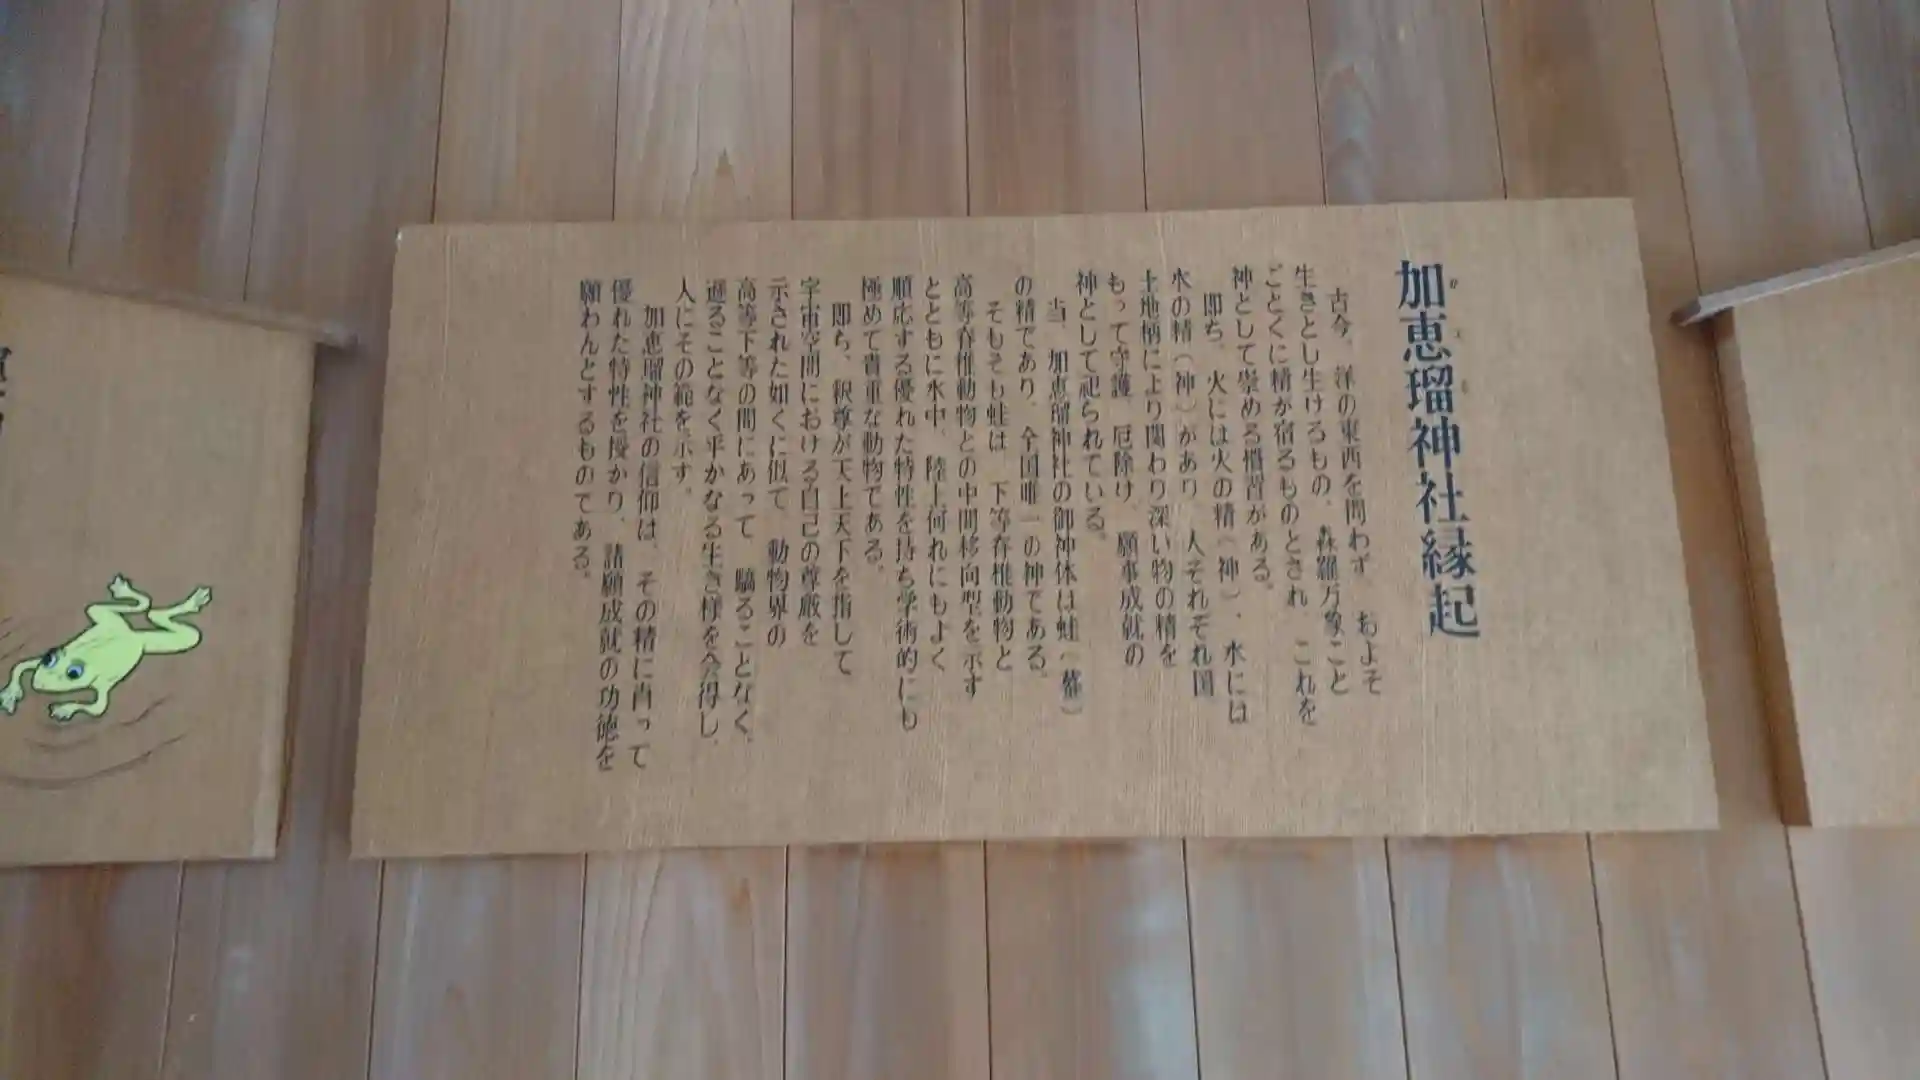 加恵瑠神社縁起
か え る
古今、洋の東西を問わず、およそ
生きとし生けるもの、森羅万象こと
ごとくに精が宿るものとされ、これを
神として崇める慣習がある。
即ち、火には火の精(神)、水には
水の精(神)があり、人それぞれ国
土地柄により関わり深い物の精を
もって守護、厄除け、願事成就の
神として祀られている。
当、加恵瑠神社の御神体は蛙(蟇)
の精であり、全国唯一の神である。
そもそも蛙は、下等脊椎動物と
高等脊椎動物との中間移向型を示す
とともに水中、陸上何れにもよく
順応する優れた特性を持ち学術的にも
極めて貴重な動物である。
即ち、釈尊が天上天下を指して
宇宙空間における自己の尊厳を
示された如くに似て、動物界の
高等下等の間にあって、驕ることなく、
遜ることなく平かなる生き様を会得し、
人にその範を示す。
加恵瑠神社の信仰は、その精に肖って
優れた特性を授かり、諸願成就の功徳を
願わんとするものである。